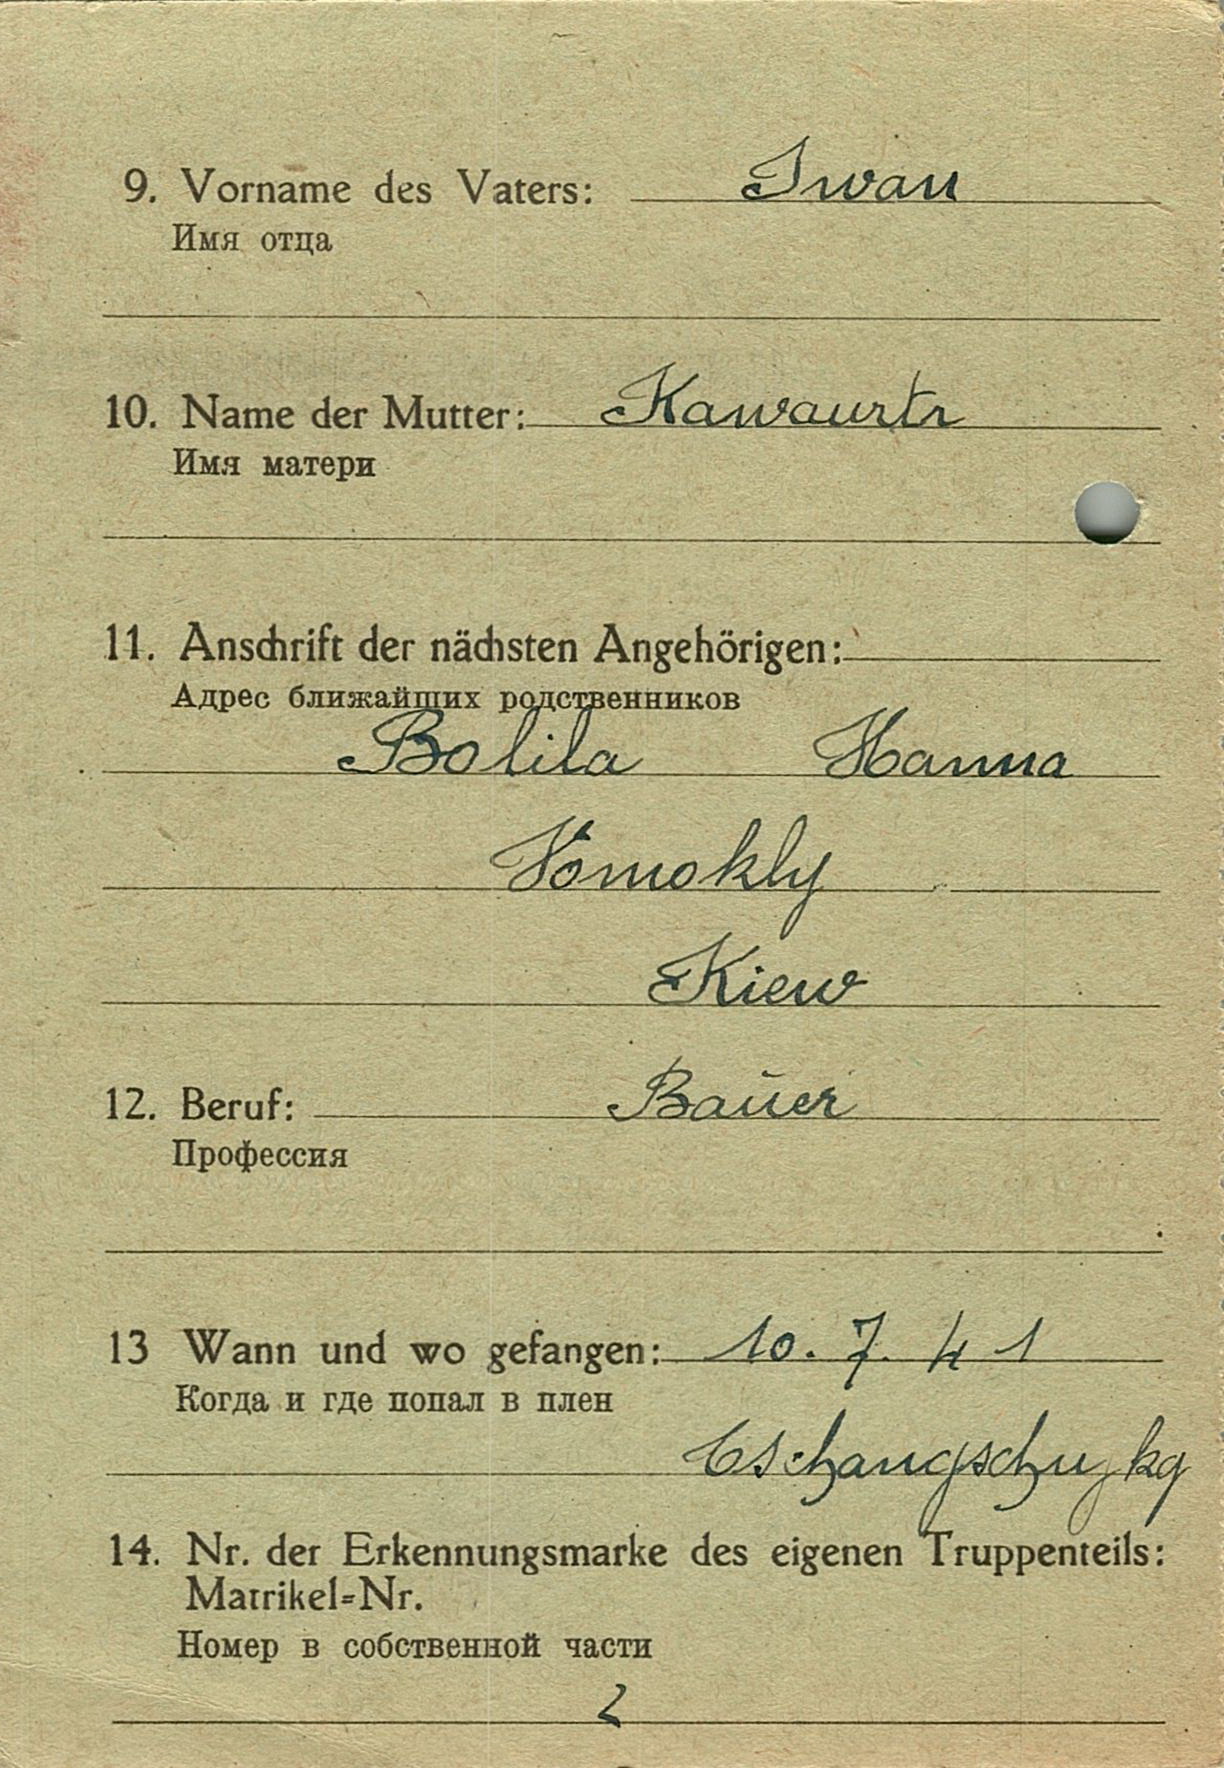 9. Vorname des Vaters: Iwan
Имя отца
10. Name der Mutter: Kawaurtr
Имя матери
11. Anschrift der nächsten Angehörigen:
Адрес ближайших родственников
Bolila Hanna
Kiew
12. Beruf: Bauer
Профессия
13 Wann und wo gefangen: 10. 7. 41
Когда и где попал в плен
14. Nr. der Erkennungsmarke des eigenen Truppenteils:
Matrikel=Nr.
Номер в собственной части